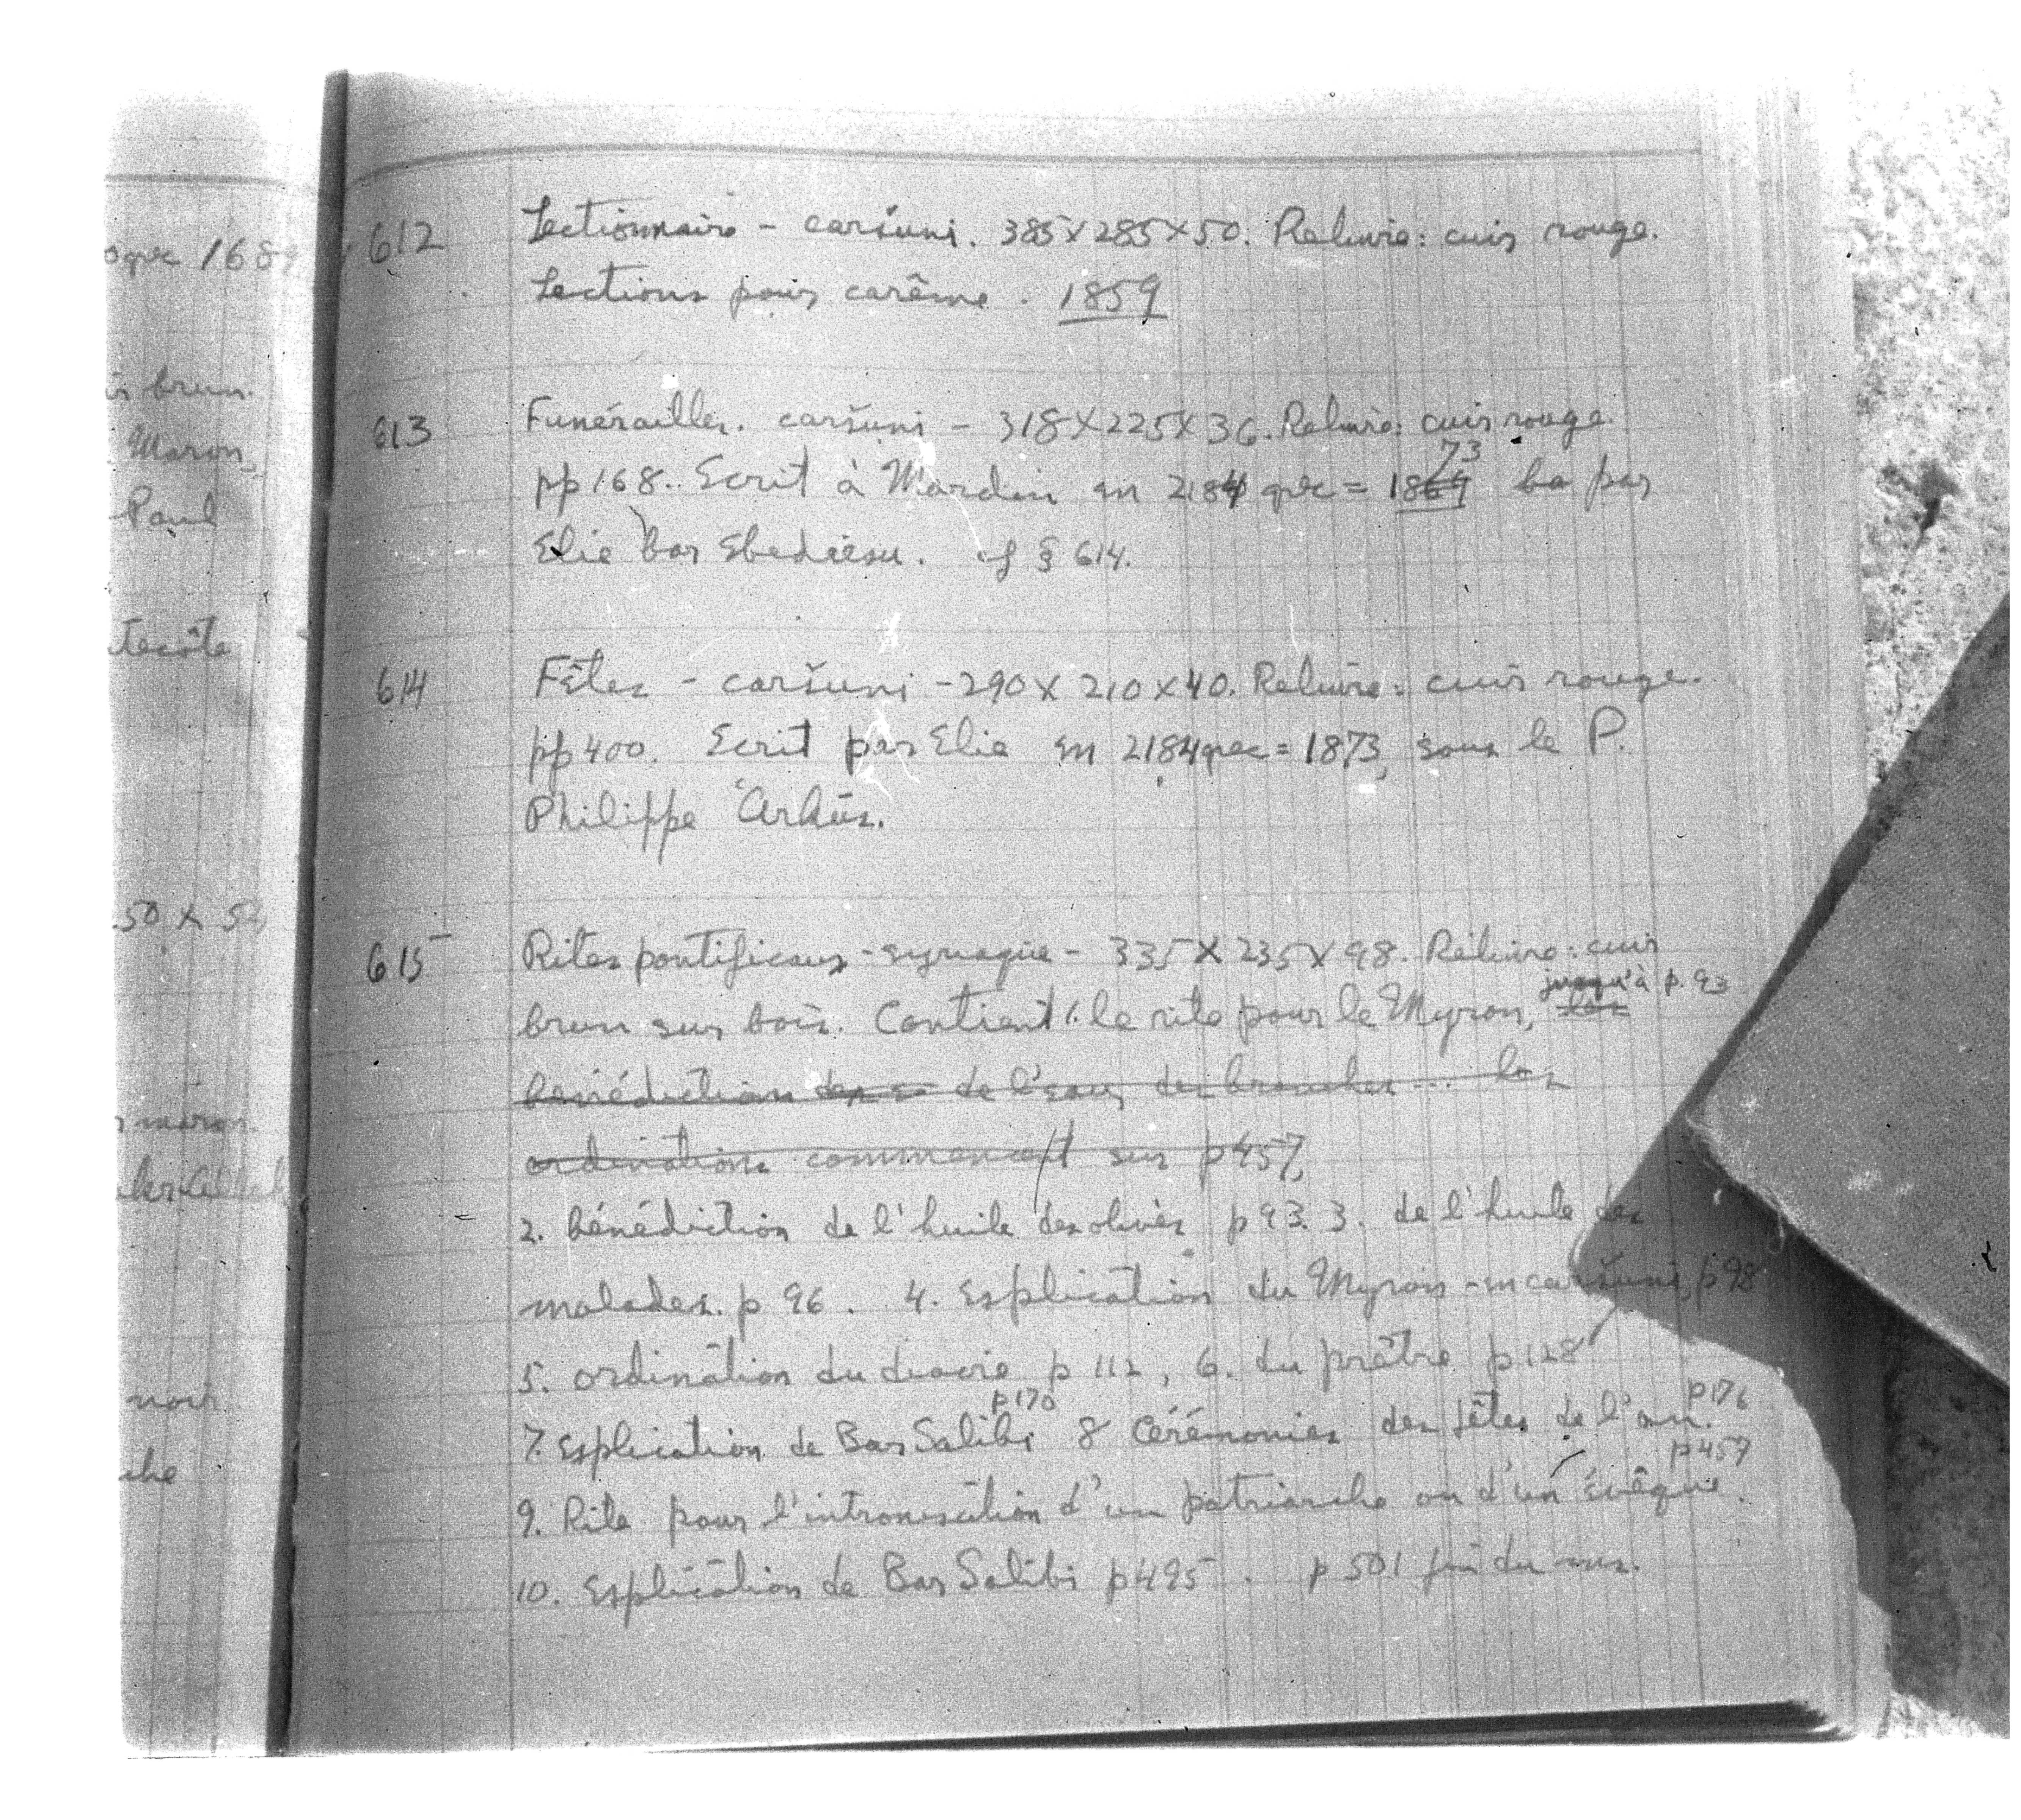 grec 168
brun.
Maron,
Paul
tecôte
50 x 5
maron.
noir
che
612 Lectionnaire - caršuni. 385 x 285 x 50. Reliure: cuir rouge.
Lections pour carême. 1859
613 Funérailles. caršuni - 318 x 225 x 36. Reliure: cuir rouge.
73
pp 168. Ecrit à Mardin en 2184 grec = 1869 par
Elie bar Ebediesu. cf § 614.
614 Fêtes - caršuni - 290 x 210 x 40. Reliure: cuir rouge.
pp 400. Ecrit par Elie en 2184 grec = 1873, sous le P.
Philippe Arkūs.
615 Rites pontificaux - syriaque - 335 x 235 x 98. Reliure: cuir
jusqu'à p. 93
brun sur bois. Contient 1. le rite pour le Myron, les
bénédiction des de l'eau, des branches ... les
ordinations commencent sur p 457,
2. bénédiction de l'huile des olives p 93. 3. de l'huile des
malades. p 96. 4. Esplication du Myron - en caršuni, p 98
5. ordination du diacre p 112, 6. du prêtre p 128
p 170 p 176
7. Esplication de Bar Salibi 8 Cérémonies des fêtes de l'an.
p 457
9. Rite pour l'intronisation d'un patriarche ou d'un évêque.
10. Esplication de Bar Salibi p 495. p 501 fin du ms.